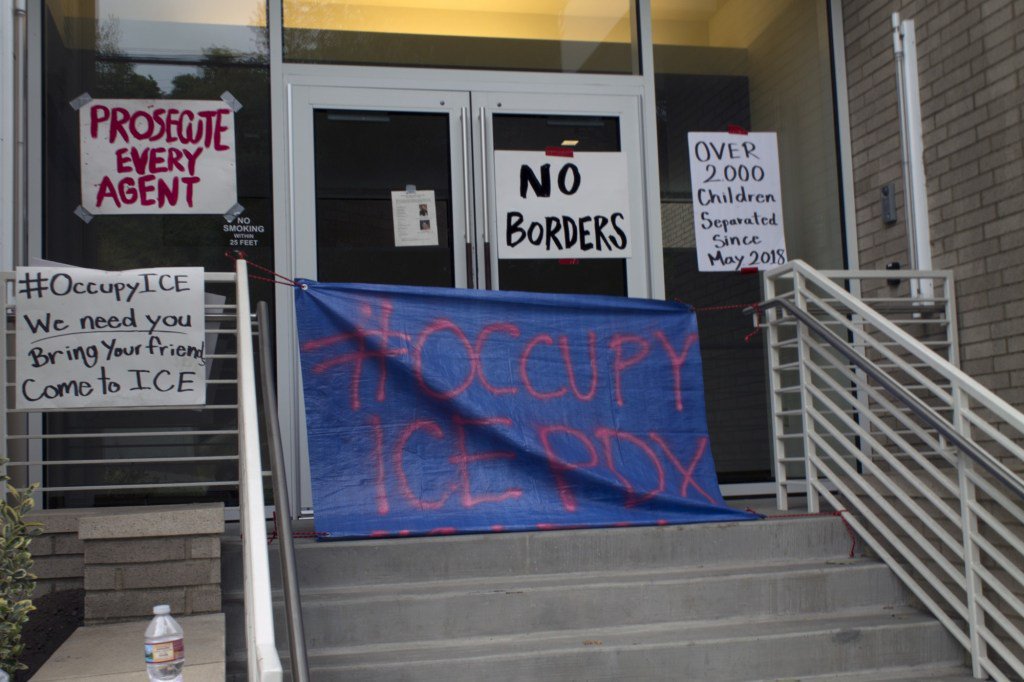 PROSECUTE
EVERY
AGENT
NO
SMOKING
WITHIN
25 FEET
NO
BORDERS
OVER
2000
Children
Separated
Since
May 2018
#OccupyICE
We need you
Bring Your friend
Come to ICE
#OCCUPY
ICE PDX